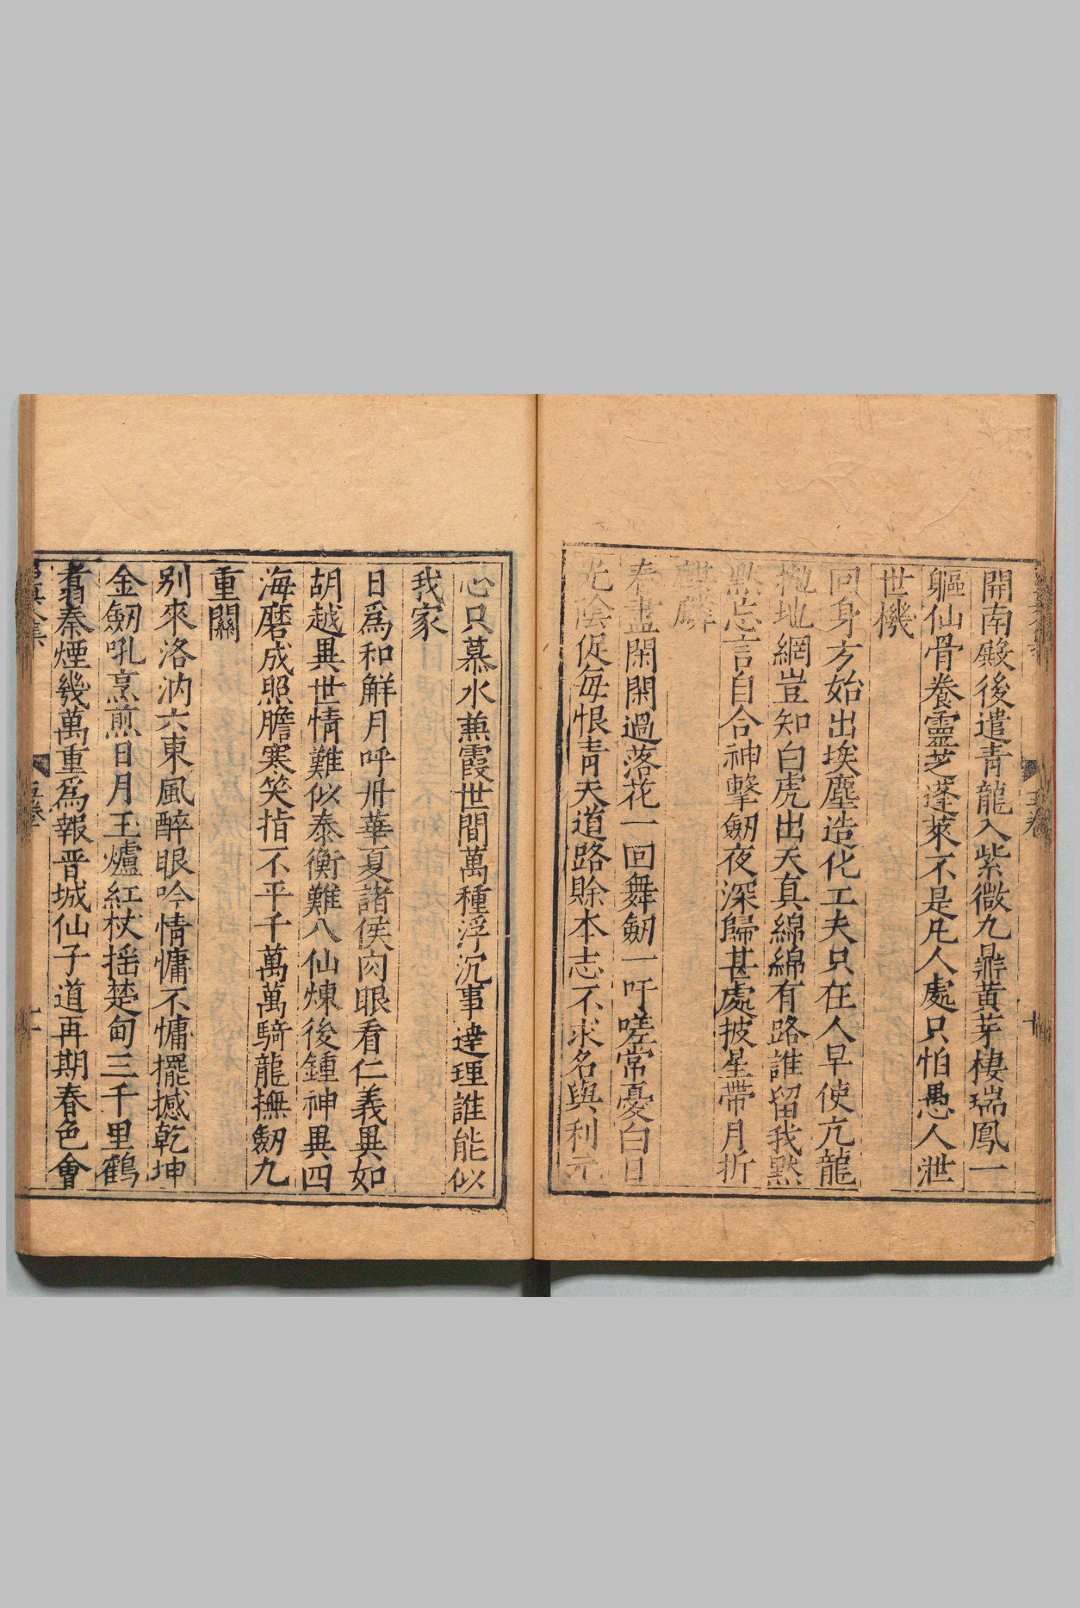 開南殿後遣青龍入紫微九鼎黄芽棲瑞鳳一
軀仙骨養靈芝蓬萊不是凡人處只怕愚人泄
世機
回身方始出埃塵造化工夫只在人早使亢龍
抛地網豈知白虎出天真綿綿有路誰留我黙
黙忘言自合神擊劒夜深歸甚處披星帶月折
麒麟
春盡閑閑過落花一回舞劒一吁嗟常憂白日
光陰促毎恨青天道路賖本志不求名與利元
心只慕水兼霞世間萬種浮沉事達理誰能似
我家
日爲和解月呼丹華夏諸侯肉眼看仁義異如
胡越異世情難似泰衡難八仙煉後鍾神異四
海磨成照膽寒笑指不平千萬萬騎龍撫劒九
重關
别來洛汭六東風醉眼吟情慵不慵擺撼乾坤
金劒吼烹煎日月玉爐紅杖揺楚甸三千里鶴
翥秦煙幾萬重爲報晋城仙子道再期春色會